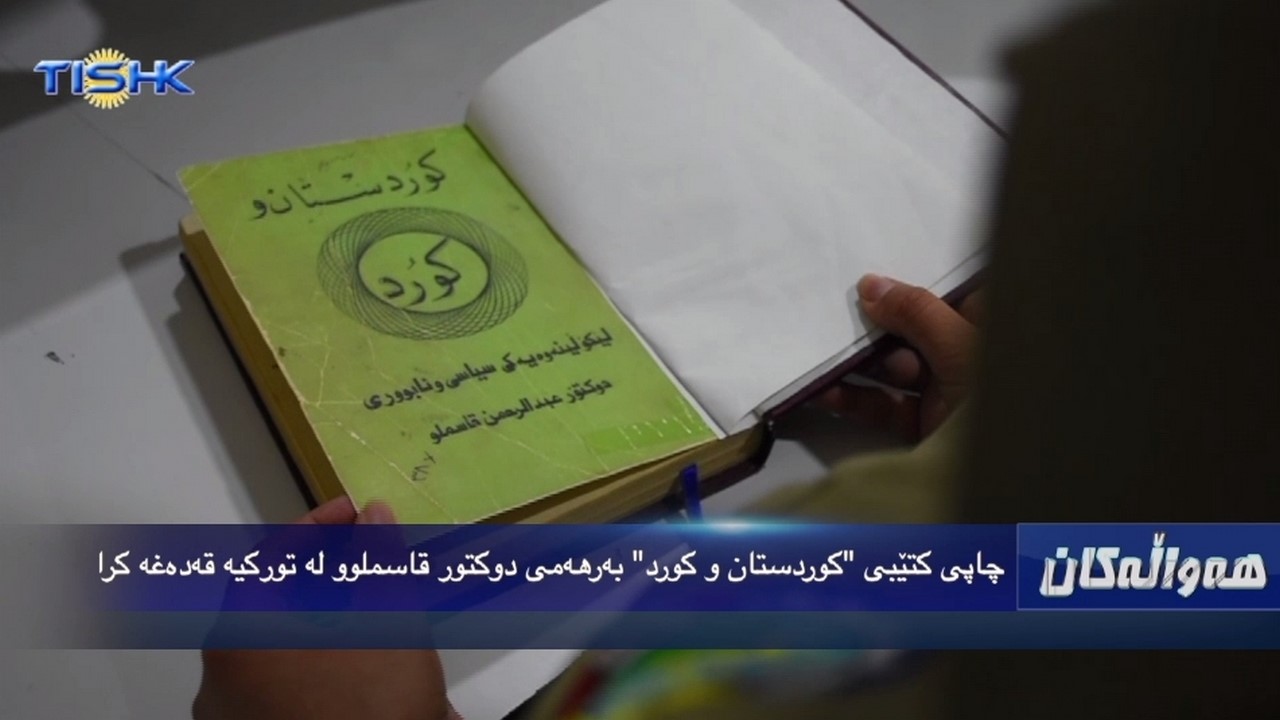 TISHK
کوردستان و
کورد
لیکۆڵینەوەیەکی سیاسی و ئابووری
دوکتۆر عبدالرحمن قاسملو
چاپی کتێبی "کوردستان و کورد" بەرهەمی دوکتور قاسملوو لە تورکیە قەدەغە کرا
هەواڵەکان